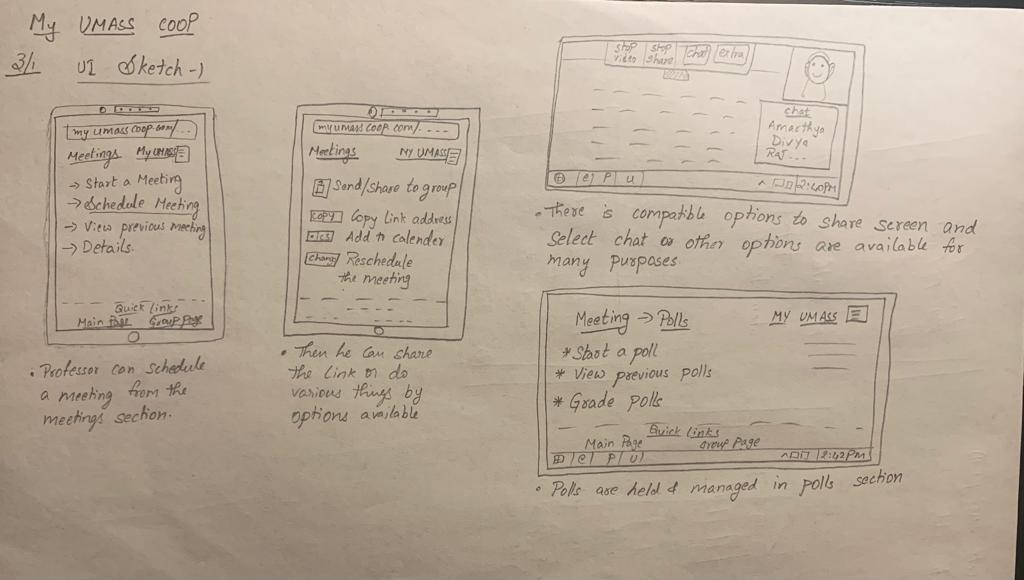 My UMASS COOP
3/1 UI Sketch-1
my umass coop.com/...
Meetings My UMASS
→ Start a Meeting
→ Schedule Meeting
→ View previous meeting
→ Details.
Quick Links
Main Page Group Page
• Professor can schedule
a meeting from the
meetings section.
my umass coop.com/....
Meetings MY UMASS
Send/share to group
COPY Copy Link address
•ics Add to calender
Change Reschedule
the meeting
• Then he can share
the Link or do
various things by
options available
stop video
stop share
chat
extra
chat
Amarthya
Divya
Raj...
e P U ^ 2:40PM
• There is compatible options to share screen and
Select chat or other options are available for
many purposes.
Meeting → Polls MY UMASS
* Start a poll
* View previous polls
* Grade polls
Quick Links
Main Page Group Page
e P U ^ 2:42PM
• Polls are held & managed in polls section